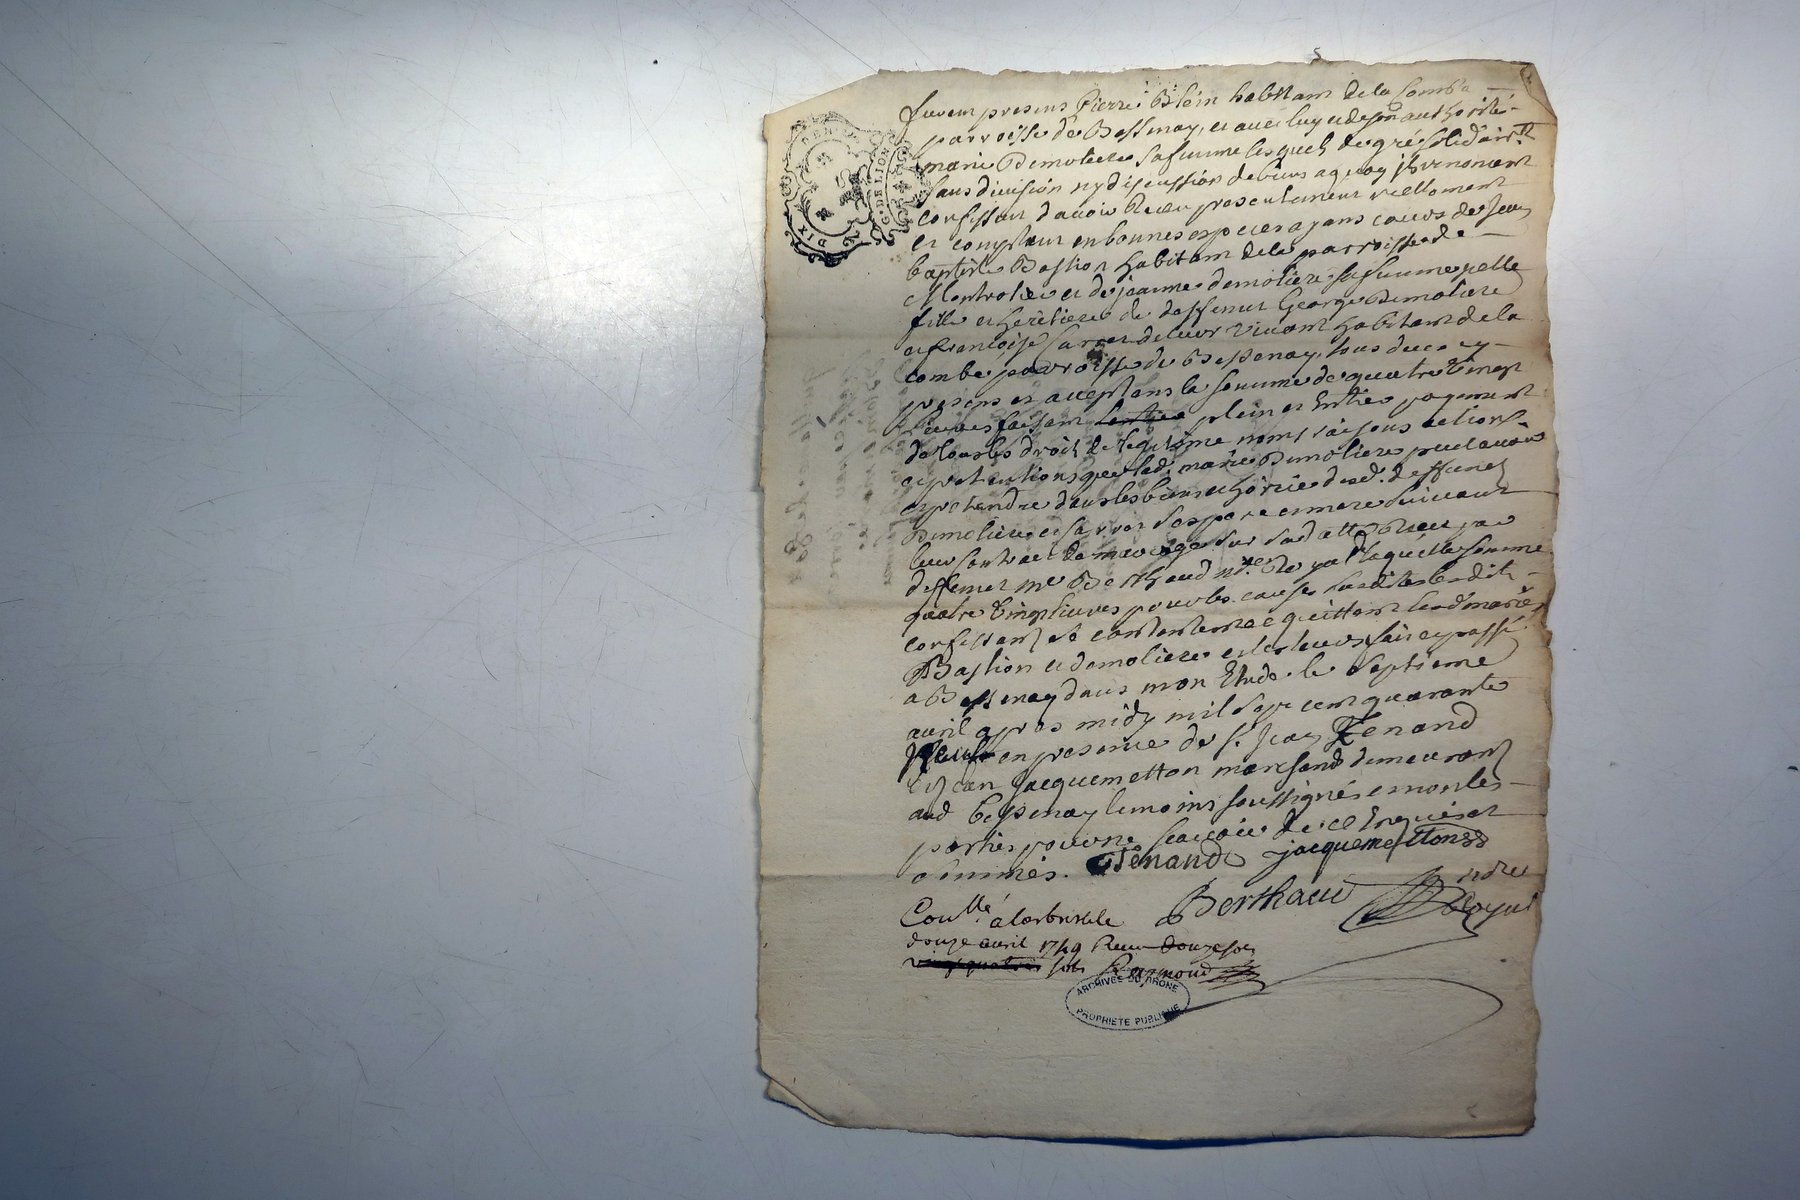 furent presens Pierre Blein habitant de la Combe
parroisse de Bessenay, et avec luy et de son authorité
marie Demoliere sa femme lesquels de gré solidairt
sans division ny discussion de biens a quoy ils renoncent
confessent d'avoir Receu presentement reellement
et comptant en bonnes especes ayans cours de Jean
baptiste Bastion habitant de la parroisse de
Montrotier et de jeanne demoliere sa femme
fille et heretiere de deffunt George Demoliere
et francoise de leur vivant habitant de la
combe parroisse de Bessenay, tous deux cy
presens et acceptans la somme de quatre vingt
livres faisant plein et Entier payement
de tous les droits de legitime noms raisons actions
et pretentions que lad. marie Demoliere peut avoir
et pretendre dans les biens et hoirie desd. deffunts
Demoliere et ses pere et mere suivant
leur contract de mariage sur sa datte Receu par
deffunt me Berthaud nre. laquelle somme
quatre vingt livres pour les causes susdites lesdits
confessants se contentent et quittent lesd. mariés
Bastion et demoliere fait et passé
a Bessenay dans mon Etude le septieme
avril apres midy mil sept cent quarante
neuf en presence de s. Jean Fenand
et Jean Jacquemetton marchand demeurant
aud Bessenay temoins soussignés et non les
parties pour ne scavoir de ce Enquises et
sommés. Fenand jacquemetton
Berthaud ndre
Royal
Coullé a larbresle
douze avril 1749 Receu douze sols
vingt quatre sols Raymond
G. DE LION
DIX
ARCHIVES DU RHONE
PROPRIETE PUBLIQUE